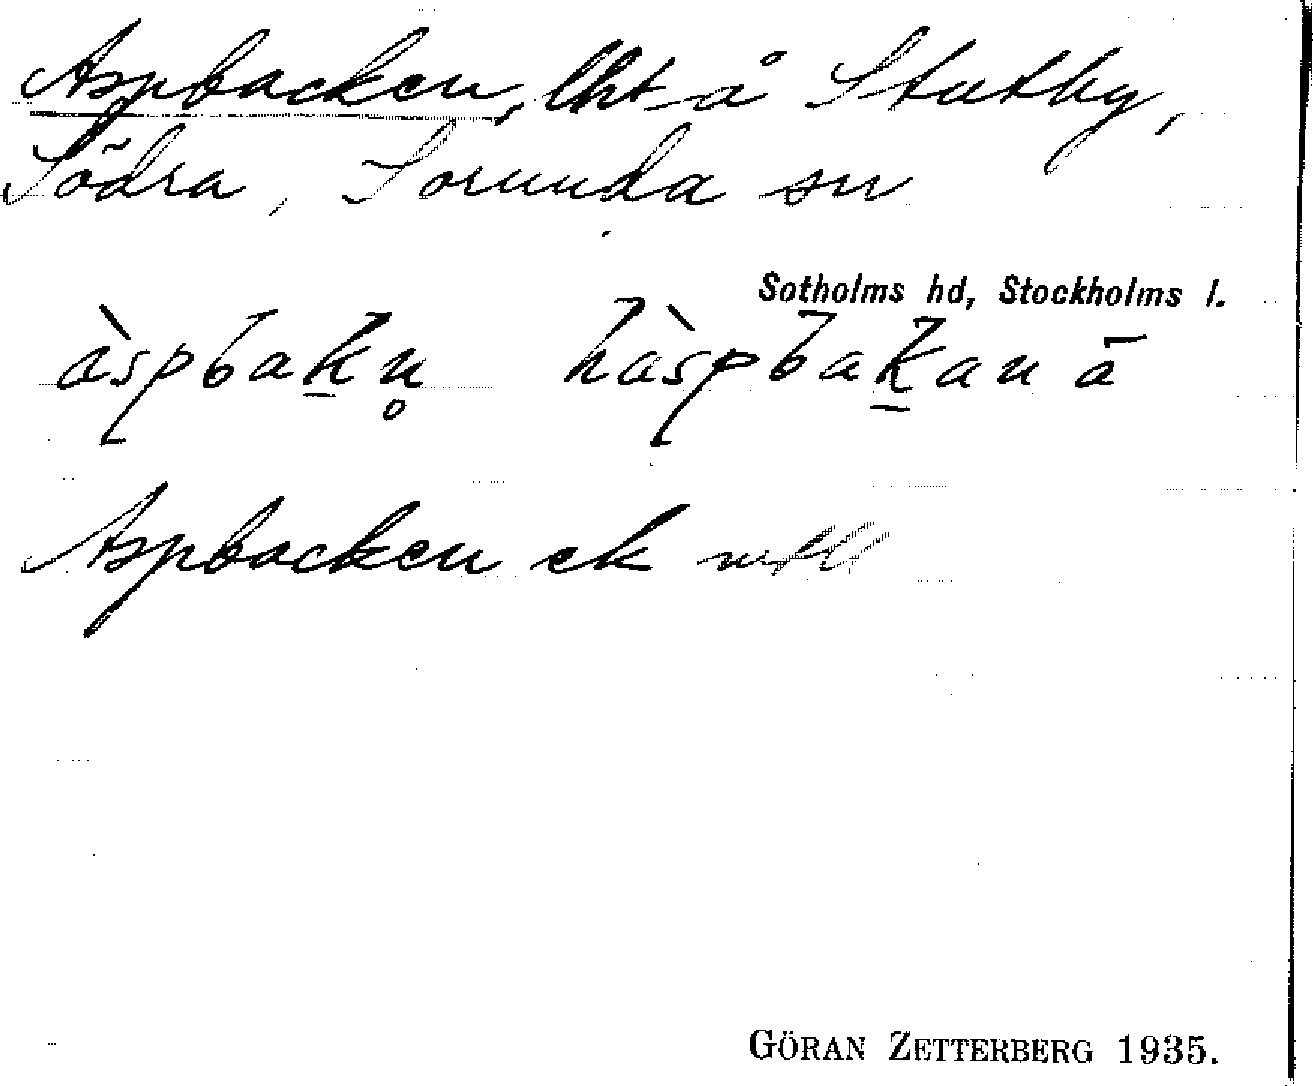 Aspbacken, lht å Stutby,
Södra, Sorunda sn
Sotholms hd, Stockholms l.
àspbak̲n̥ hàspbak̲an ā
Aspbacken ek
GÖRAN ZETTERBERG 1935.